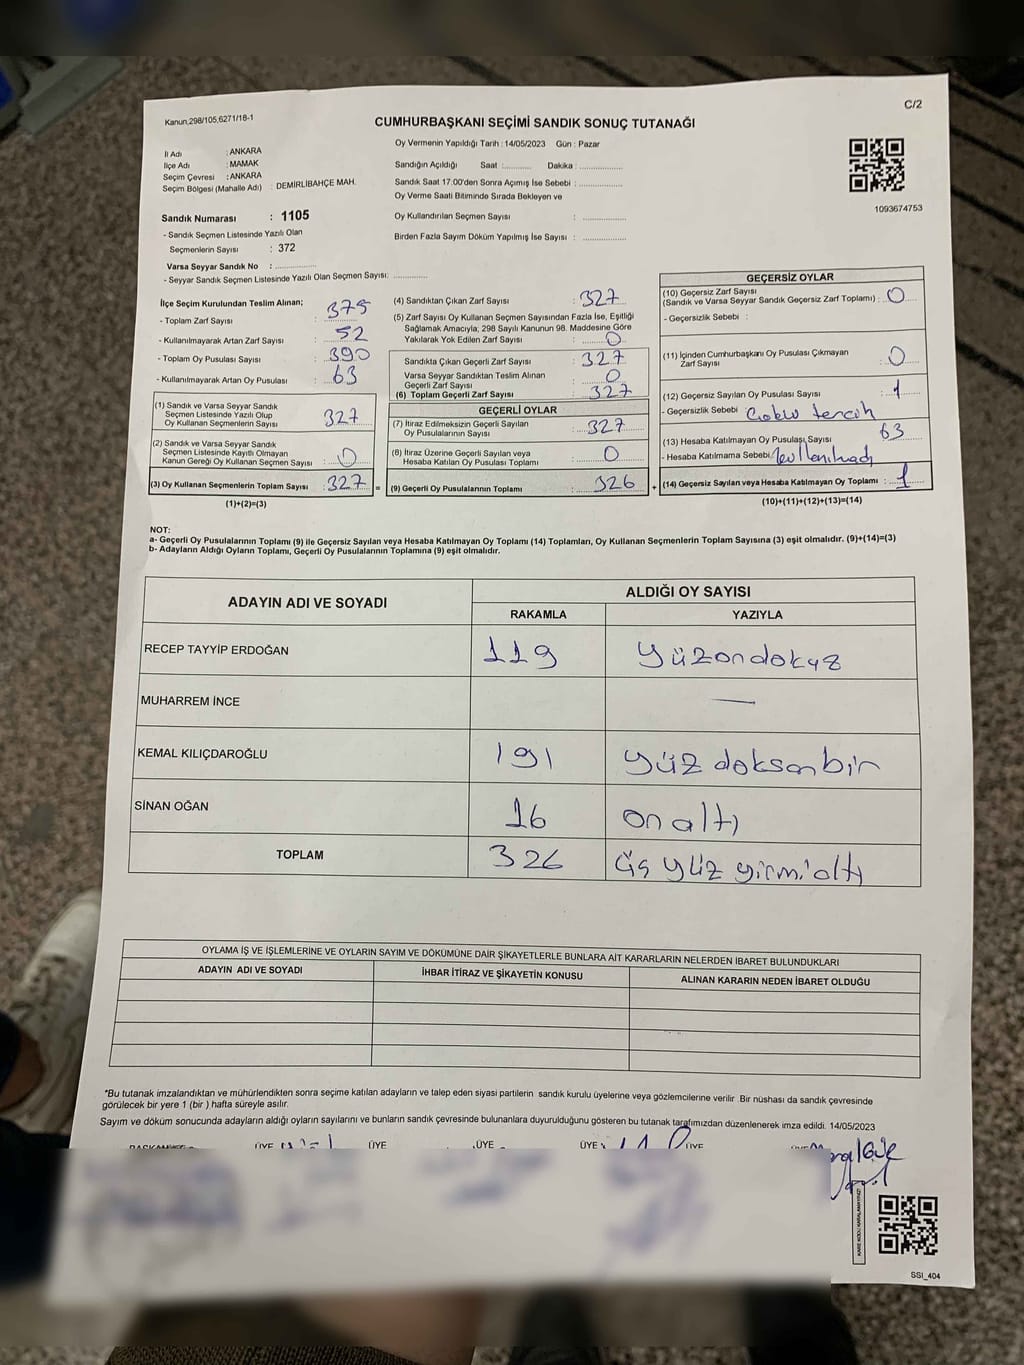 C/2
Kanun,298/105,6271/18-1
CUMHURBAŞKANI SEÇİMİ SANDIK SONUÇ TUTANAĞI
Oy Vermenin Yapıldığı Tarih : 14/05/2023 Gün : Pazar
İl Adı : ANKARA
İlçe Adı : MAMAK
Seçim Çevresi : ANKARA
Seçim Bölgesi (Mahalle Adı) : DEMİRLİBAHÇE MAH.
Sandığın Açıldığı Saat :.......... Dakika :...............
Sandık Saat 17.00'den Sonra Açımış İse Sebebi :...............
Oy Verme Saati Bitiminde Sırada Bekleyen ve
Oy Kullandırılan Seçmen Sayısı : ...............
Birden Fazla Sayım Döküm Yapılmış İse Sayısı : ...............
1093674753
Sandık Numarası : 1105
- Sandık Seçmen Listesinde Yazılı Olan
Seçmenlerin Sayısı : 372
Varsa Seyyar Sandık No : ...............
- Seyyar Sandık Seçmen Listesinde Yazılı Olan Seçmen Sayısı: ...............
İlçe Seçim Kurulundan Teslim Alınan;
- Toplam Zarf Sayısı : 379
- Kullanılmayarak Artan Zarf Sayısı : 52
- Toplam Oy Pusulası Sayısı : 390
- Kullanılmayarak Artan Oy Pusulası : 63
(1) Sandık ve Varsa Seyyar Sandık
Seçmen Listesinde Yazılı Olup
Oy Kullanan Seçmen Sayısı : 327
(2) Sandık ve Varsa Seyyar Sandık
Seçmen Listesinde Kayıtlı Olmayan
Kanun Gereği Oy Kullanan Seçmen Sayısı : 0
(3) Oy Kullanan Seçmenlerin Toplam Sayısı : 327 =
(1)+(2)=(3)
(4) Sandıktan Çıkan Zarf Sayısı : 327
(5) Zarf Sayısı Oy Kullanan Seçmen Sayısından Fazla İse, Eşitliği
Sağlamak Amacıyla; 298 Sayılı Kanunun 98. Maddesine Göre
Yakılarak Yok Edilen Zarf Sayısı : 0
Sandıkta Çıkan Geçerli Zarf Sayısı : 327
Varsa Seyyar Sandıktan Teslim Alınan
Geçerli Zarf Sayısı : 0
(6) Toplam Geçerli Zarf Sayısı : 327
GEÇERLİ OYLAR
(7) İtiraz Edilmeksizin Geçerli Sayılan
Oy Pusulalarının Sayısı : 327
(8) İtiraz Üzerine Geçerli Sayılan veya
Hesaba Katılan Oy Pusulası Toplamı : 0
(9) Geçerli Oy Pusulalarının Toplamı : 326 +
GEÇERSİZ OYLAR
(10) Geçersiz Zarf Sayısı
(Sandık ve Varsa Seyyar Sandık Geçersiz Zarf Toplamı) : 0
- Geçersizlik Sebebi :
(11) İçinden Cumhurbaşkanı Oy Pusulası Çıkmayan
Zarf Sayısı : 0
(12) Geçersiz Sayılan Oy Pusulası Sayısı : 1
- Geçersizlik Sebebi Çoklu tercih
(13) Hesaba Katılmayan Oy Pusulası Sayısı 63
- Hesaba Katılmama Sebebi
(14) Geçersiz Sayılan veya Hesaba Katılmayan Oy Toplamı : 1
(10)+(11)+(12)+(13)=(14)
NOT:
a- Geçerli Oy Pusulalarının Toplamı (9) ile Geçersiz Sayılan veya Hesaba Katılmayan Oy Toplamı (14) Toplamları, Oy Kullanan Seçmenlerin Toplam Sayısına (3) eşit olmalıdır. (9)+(14)=(3)
b- Adayların Aldığı Oyların Toplamı, Geçerli Oy Pusulalarının Toplamına (9) eşit olmalıdır.
ADAYIN ADI VE SOYADI ALDIĞI OY SAYISI
RAKAMLA YAZIYLA
RECEP TAYYİP ERDOĞAN 119 Yüzondokuz
MUHARREM İNCE —
KEMAL KILIÇDAROĞLU 191 Yüz doksan bir
SİNAN OĞAN 16 on altı
TOPLAM 326 üç yüz yirmi altı
OYLAMA İŞ VE İŞLEMLERİNE VE OYLARIN SAYIM VE DÖKÜMÜNE DAİR ŞİKAYETLERLE BUNLARA AİT KARARLARIN NELERDEN İBARET BULUNDUKLARI
ADAYIN ADI VE SOYADI İHBAR İTİRAZ VE ŞİKAYETİN KONUSU ALINAN KARARIN NEDEN İBARET OLDUĞU
*Bu tutanak imzalandıktan ve mühürlendikten sonra seçime katılan adayların ve talep eden siyasi partilerin sandık kurulu üyelerine veya gözlemcilerine verilir .Bir nüshası da sandık çevresinde
görülecek bir yere 1 (bir ) hafta süreyle asılır.
Sayım ve döküm sonucunda adayların aldığı oyların sayılarını ve bunların sandık çevresinde bulunanlara duyurulduğunu gösteren bu tutanak tarafımızdan düzenlenerek imza edildi. 14/05/2023
ÜYE ÜYE ÜYE ÜYE ÜYE
SSI_404